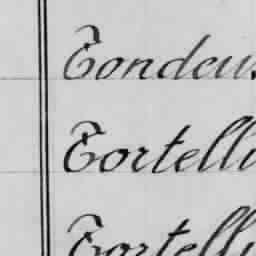 Tondeu
Tortelli
Tortelli